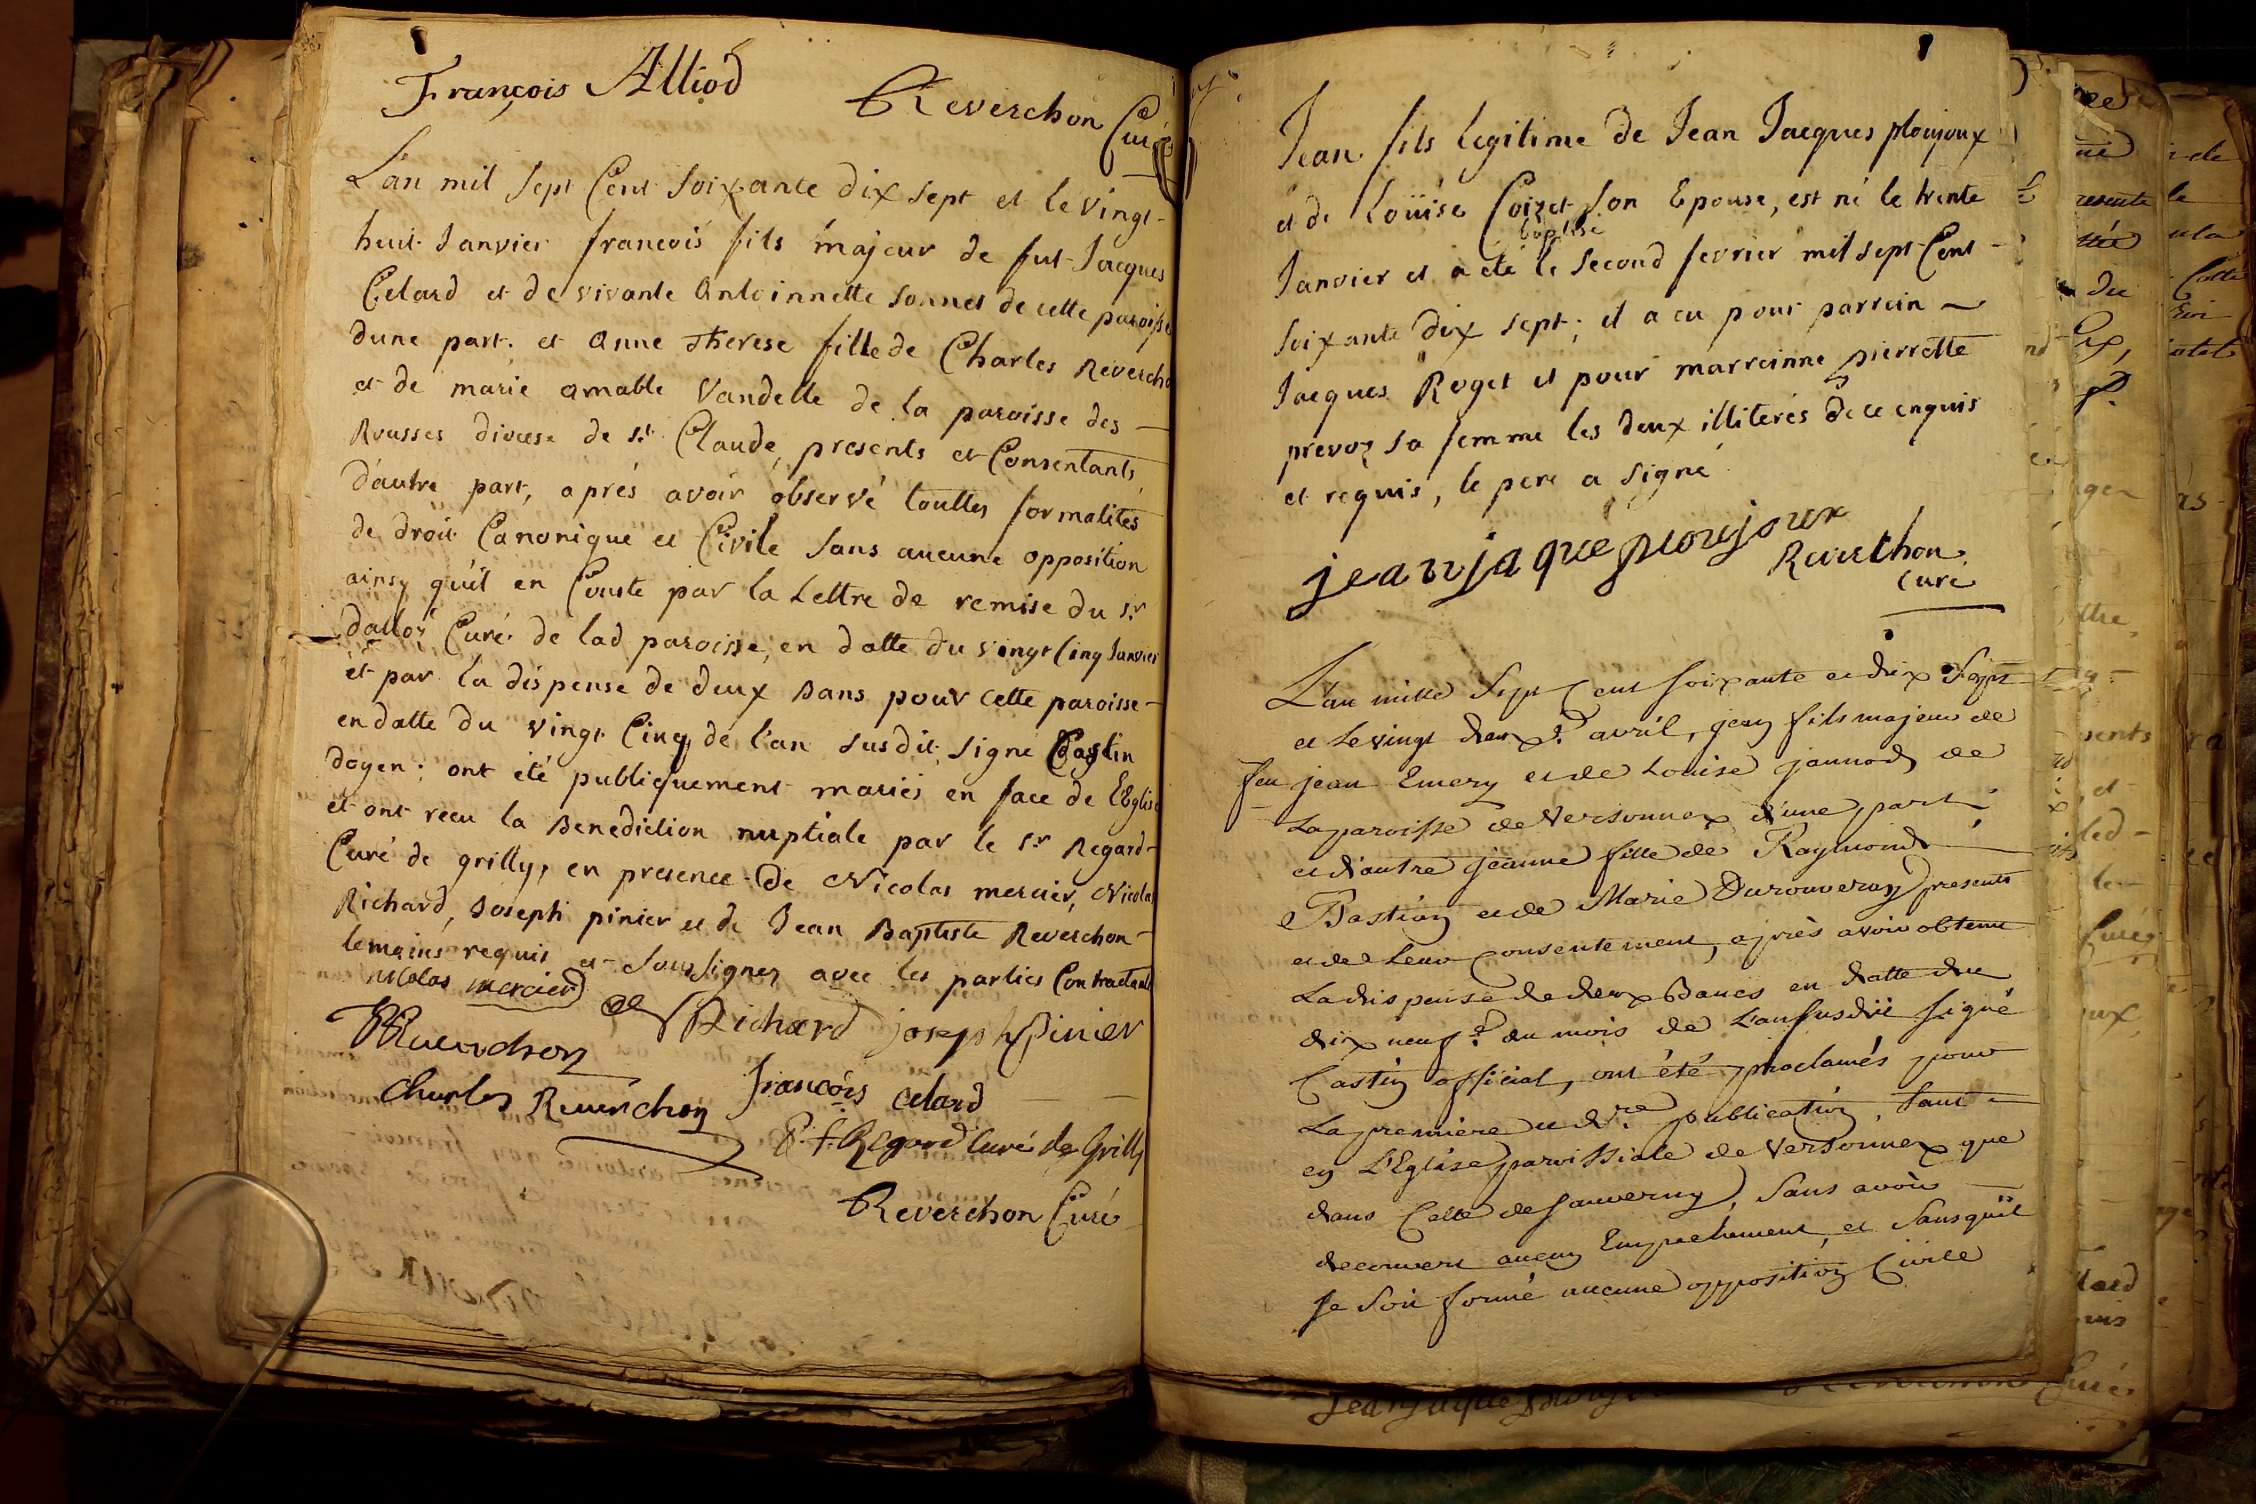 François Alliod
Reverchon Curé
L'an mil sept Cent soixante dix sept et le vingt-
huit Janvier francois fils majeur de fut Jacques
Celard et de vivante Antoinnette sonnet de cette paroisse
dune part. et Anne Therese fille de Charles Reverchon
et de marie amable Vandelle de la paroisse des
Rousses diocese de st Claude, presents et Consentants,
d'autre part, aprés avoir observé touttes formalités
de droit Canonique et Civile sans aucune opposition
ainsy qu'il en Conste par la Lettre de remise du sr
Curé de lad paroisse, en datte du vingt Cinq Janvier
et par la dispense de deux bans pour cette paroisse
en datte du vingt Cinq de l'an susdit signé Castin
doyen; ont été publiquement mariés en face de l'Eglise
et ont recu la Benediction nuptiale par le sr Regard
Curé de grilly, en presence de Nicolas mercier, Nicolas
Richard, Joseph pinier et de Jean Baptiste Reverchon
temoins requis et soussignez avec les parties Contractants
nicolas mercier
Richard joseph pinier
Reverchon
Charles Reverchon francois celard
Regard curé de Grilly
Reverchon Curé
Jean fils legitime de Jean Jacques plonjoux
et de Loüise Coizet son Epouse, est né le trente
baptisé
Janvier et a été le second fevrier mil sept Cent
soixante dix sept; il a eu pour parrein
Jacques Roget et pour marreinne pierrette
prevoz sa femme les deux illiterés de ce enquis
et requis, le pere a signé
jean jaque plonjoux
Reverchon
Curé
L'an mille sept Cent soixante et dix sept
et le vingt deux e avril, jean fils majeur de
feu jean Emery et de Louise jannod de
La paroisse de Versonnex d'une part
et d'autre jeanne fille de Raymond
Bastian et de Marie Durouveray presents
et de Leur Consentement, après avoir obtenu
La dispense de deux Bancs en datte du
dix neuf e du mois de L'an susdit signé
Castin official, ont été proclamés pour
La premiere et dre publication, tant
en L'Eglise paroissiale de Versonnex que
dans Celle de sauverny, sans avoir
decouvert aucun Empechement, et sans qu'il
se soit formé aucune opposition Civile